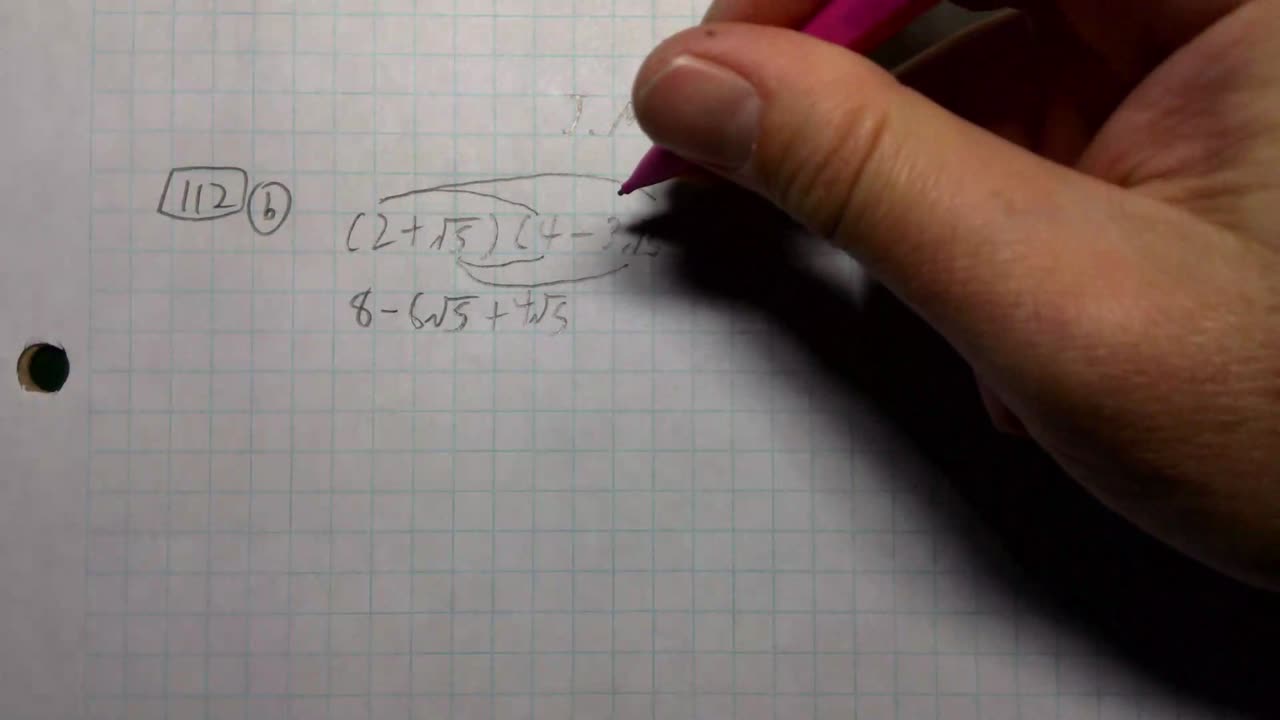 J.
112 b (2+√5)(4-3√5
8-6√5+4√5